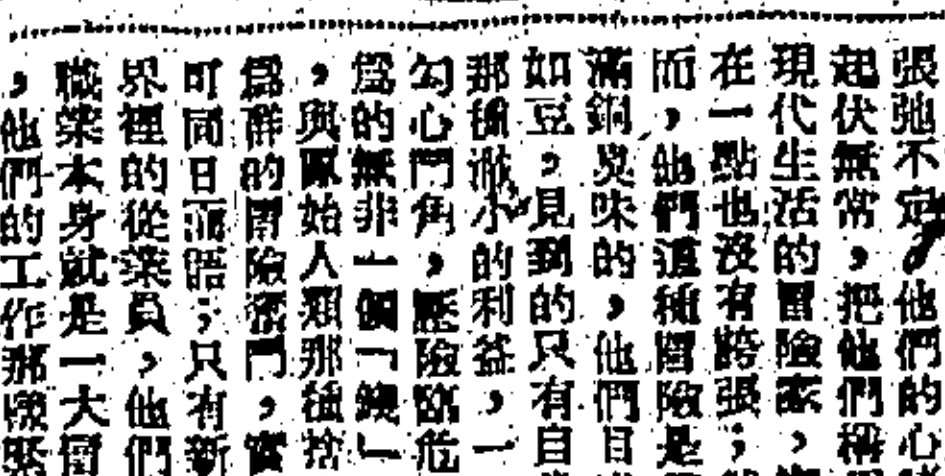 張弛不定,他們的心
起伏無常,把他們稱
現代生活的冒險家,
在一點也沒有誇張;
而,他們這種冒險是
滿銅臭味的,他們目
如豆,見到的只有自
那種渺小的利益,一
勾心鬥角,歷險臨危
為的無非一個「錢」
,與原始人類那種捨
為群的冒險奮鬥,實
可同日而語;只有新
界裡的從業員,他們
職業本身就是一大冒
,他們的工作那樣緊